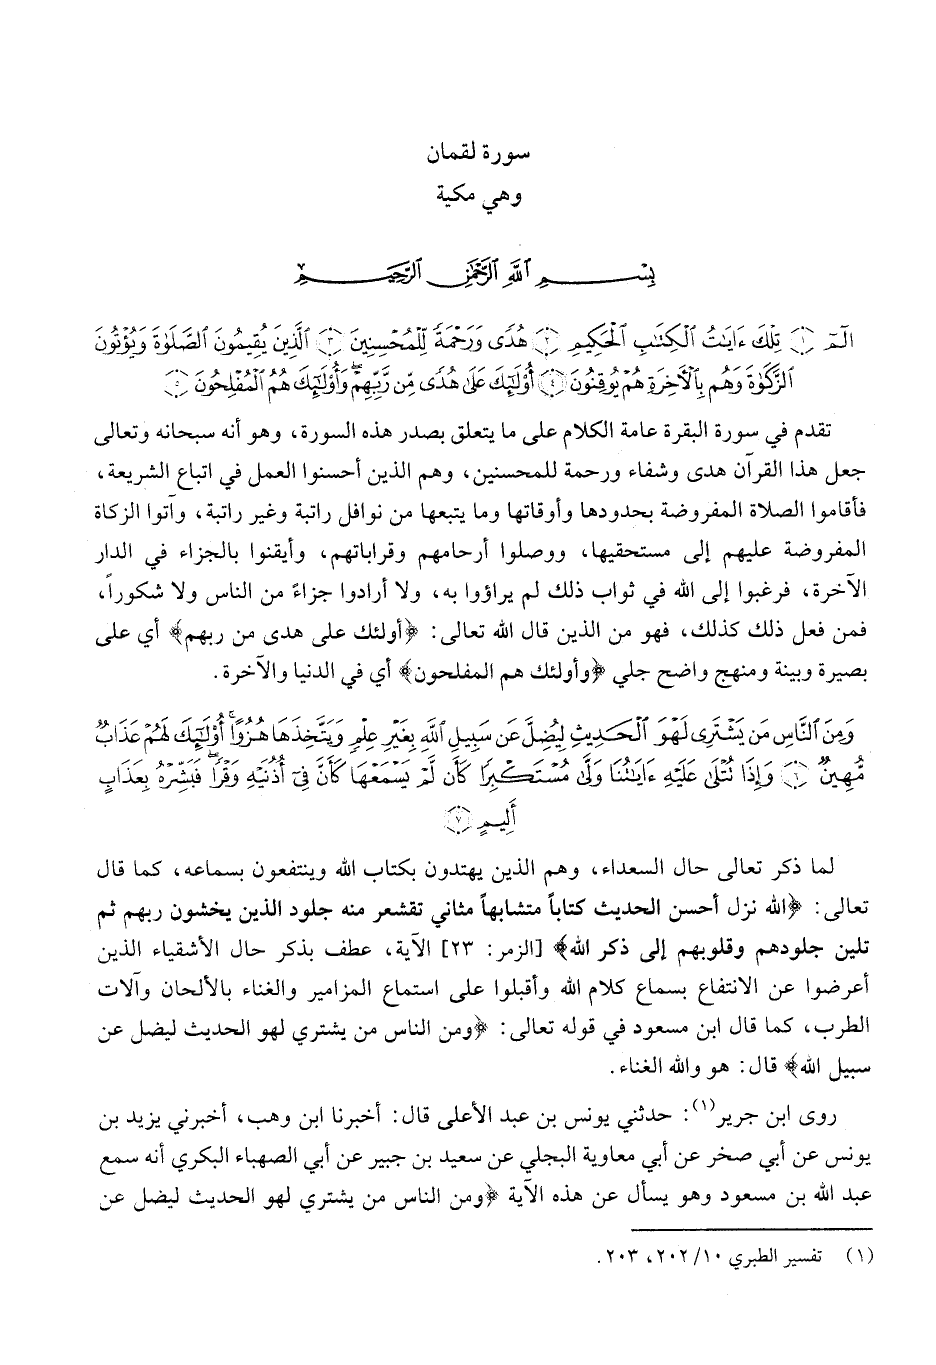 سورة لقمان
وهي مكية
بِسْمِ ٱللَّهِ ٱلرَّحْمَٰنِ ٱلرَّحِيمِ
الٓمٓ ﴿١﴾ تِلْكَ ءَايَٰتُ ٱلْكِتَٰبِ ٱلْحَكِيمِ ﴿٢﴾ هُدًى وَرَحْمَةً لِّلْمُحْسِنِينَ ﴿٣﴾ ٱلَّذِينَ يُقِيمُونَ ٱلصَّلَوٰةَ وَيُؤْتُونَ
ٱلزَّكَوٰةَ وَهُم بِٱلْأَخِرَةِ هُمْ يُوقِنُونَ ﴿٤﴾ أُوْلَٰٓئِكَ عَلَىٰ هُدًى مِّن رَّبِّهِمْ ۖ وَأُوْلَٰٓئِكَ هُمُ ٱلْمُفْلِحُونَ ﴿٥﴾
تقدم في سورة البقرة عامة الكلام على ما يتعلق بصدر هذه السورة، وهو أنه سبحانه وتعالى
جعل هذا القرآن هدى وشفاء ورحمة للمحسنين، وهم الذين أحسنوا العمل في اتباع الشريعة،
فأقاموا الصلاة المفروضة بحدودها وأوقاتها وما يتبعها من نوافل راتبة وغير راتبة، وآتوا الزكاة
المفروضة عليهم إلى مستحقيها، ووصلوا أرحامهم وقراباتهم، وأيقنوا بالجزاء في الدار
الآخرة، فرغبوا إلى الله في ثواب ذلك لم يراؤوا به، ولا أرادوا جزاءً من الناس ولا شكوراً،
فمن فعل ذلك كذلك، فهو من الذين قال الله تعالى: ﴿أولئك على هدى من ربهم﴾ أي على
بصيرة وبينة ومنهج واضح جلي ﴿وأولئك هم المفلحون﴾ أي في الدنيا والآخرة.
وَمِنَ ٱلنَّاسِ مَن يَشْتَرِى لَهْوَ ٱلْحَدِيثِ لِيُضِلَّ عَن سَبِيلِ ٱللَّهِ بِغَيْرِ عِلْمٍ وَيَتَّخِذَهَا هُزُوًا ۚ أُوْلَٰٓئِكَ لَهُمْ عَذَابٌ
مُّهِينٌ ﴿٦﴾ وَإِذَا تُتْلَىٰ عَلَيْهِ ءَايَٰتُنَا وَلَّىٰ مُسْتَكْبِرًا كَأَن لَّمْ يَسْمَعْهَا كَأَنَّ فِىٓ أُذُنَيْهِ وَقْرًا ۖ فَبَشِّرْهُ بِعَذَابٍ
أَلِيمٍ ﴿٧﴾
لما ذكر تعالى حال السعداء، وهم الذين يهتدون بكتاب الله وينتفعون بسماعه، كما قال
تعالى: ﴿الله نزل أحسن الحديث كتاباً متشابهاً مثاني تقشعر منه جلود الذين يخشون ربهم ثم
تلين جلودهم وقلوبهم إلى ذكر الله﴾ [الزمر: ٢٣] الآية، عطف بذكر حال الأشقياء الذين
أعرضوا عن الانتفاع بسماع كلام الله وأقبلوا على استماع المزامير والغناء بالألحان وآلات
الطرب، كما قال ابن مسعود في قوله تعالى: ﴿ومن الناس من يشتري لهو الحديث ليضل عن
سبيل الله﴾ قال: هو والله الغناء.
روى ابن جرير(١): حدثني يونس بن عبد الأعلى قال: أخبرنا ابن وهب، أخبرني يزيد بن
يونس عن أبي صخر عن أبي معاوية البجلي عن سعيد بن جبير عن أبي الصهباء البكري أنه سمع
عبد الله بن مسعود وهو يسأل عن هذه الآية ﴿ومن الناس من يشتري لهو الحديث ليضل عن
(١) تفسير الطبري ٢٠٢/١٠، ٢٠٣.